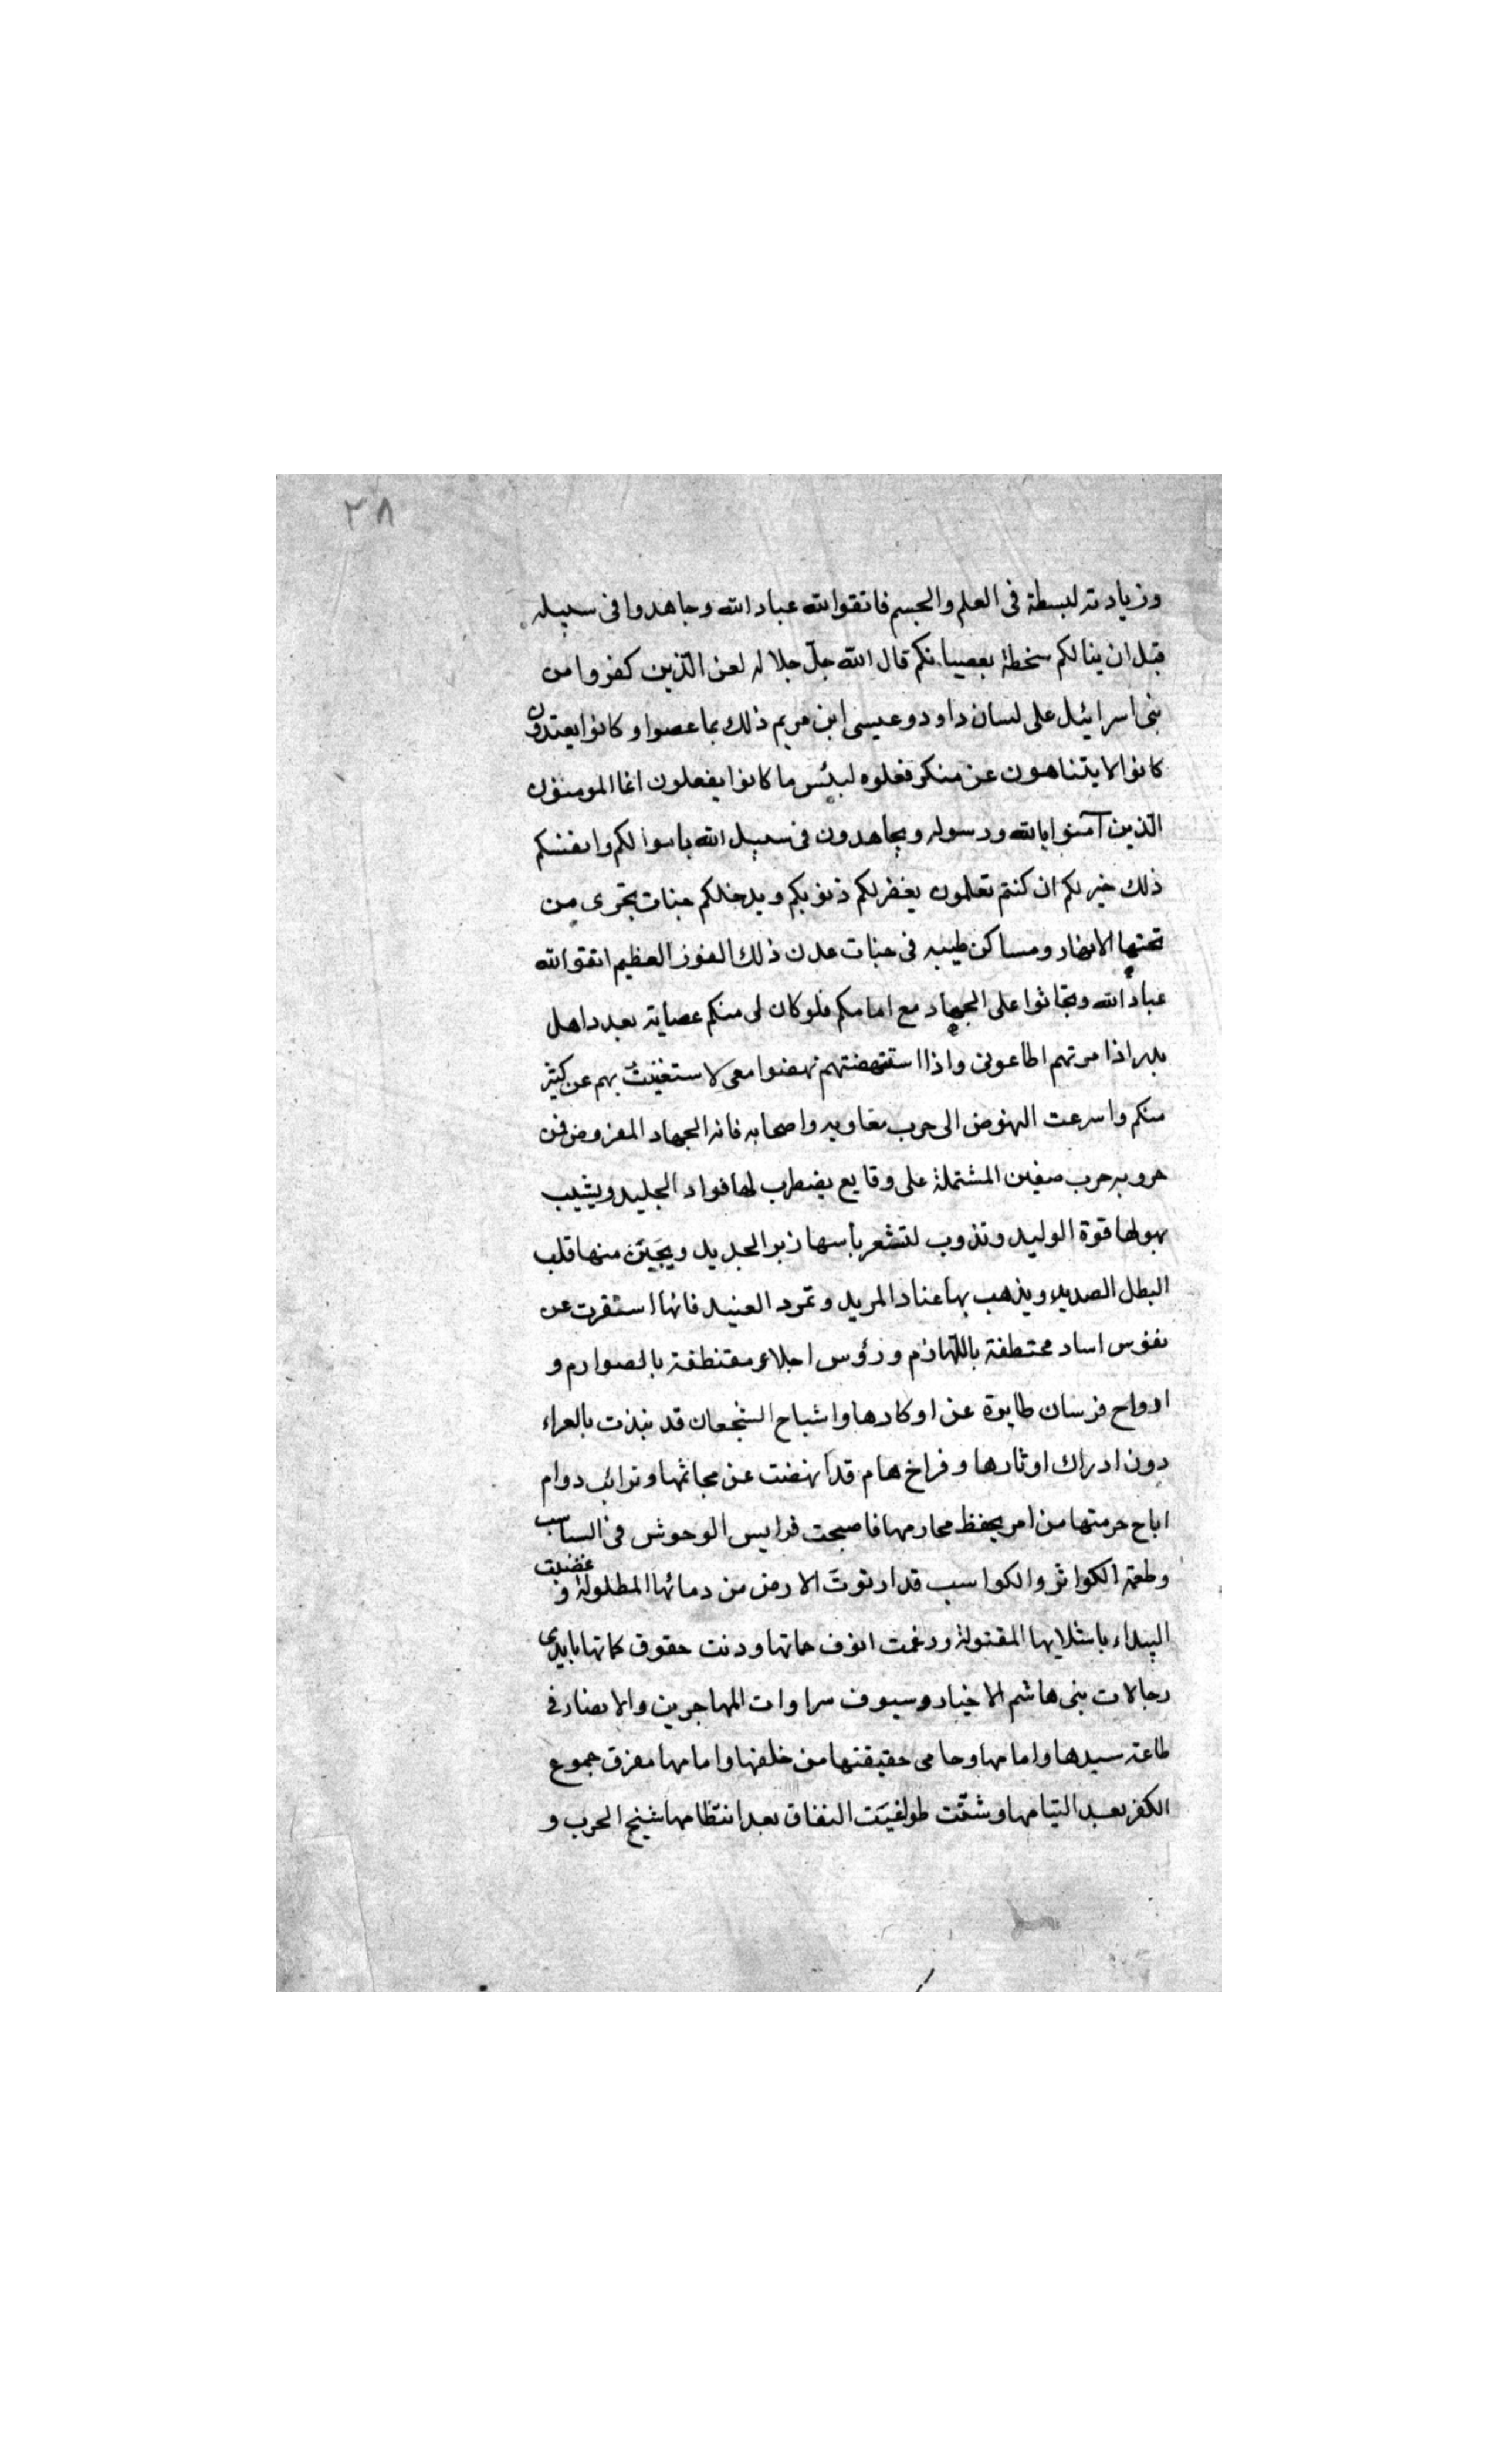 ٣٨
وزيادته لبسطة فى العلم والجسم فاتقوا الله عباد الله وجاهدوا فى سبيله
قبل ان ينالكم سخطة بعصيانكم قال الله جلّ جلاله لعن الّذين كفروا من
بنى اسرائيل على لسان داود وعيسى ابن مريم ذلك بما عصوا وكانوا يعتدون
كانوا لا يتناهون عن منكر فعلوه لبئس ما كانوا يفعلون انما المومنون
الّذين آمنوا بالله ورسوله ويجاهدون فى سبيل الله باموالكم وانفسكم
ذلك خير لكم ان كنتم تعلمون يغفر لكم ذنوبكم ويدخلكم جنات تجرى من
تحتها الانهار ومساكن طيبه فى جنات عدن ذلك الفوز العظيم اتقوا الله
عباد الله وتحاثوا على الجهاد مع امامكم فلو كان لى منكم عصابة بعدد اهل
بدر اذا مرتهم اطاعونى واذا استنهضتهم نهضوا معى لاستغنيت بهم عن كثير
منكم واسرعت النهوض الى حرب معاويه واصحابه فانه الجهاد المفروض فمن
حروبه حرب صفين المشتملة على وقايع يضطرب لها فواد الجليد ويشيب
بهولها قوة الوليد وتذوب لتسعر باسها زبر الحديد ويجبن منها قلب
البطل الصديد ويذهب بها عناد المريد وتمرد العنيد فانها اسفرت عن
نفوس اساد مختطفة باللّهاذم ورؤس اجلاء مقتطفة بالصوارم و
ارواح فرسان طايرة عن اوكارها واشباح الشجعان قد نبذت بالعراء
دون ادراك اوتارها وفراخ هام قد انهضت عن مجاثمها وترائب دوام
اباح حرمتها من امر بحفظ محارمها فاصبحت فرايس الوحوش فى السباسب
وطعمة الكواثر والكواسب قد ارتوت الارض من دمائها المطلولة وغضبت
البيداء باشلايها المقتولة ورغمت انوف حماتها ودنت حقوق كماتها بايدى
رجالات بنى هاشم الاخيار وسيوف سراوات المهاجرين والانصار فى
طاعة سيدها وامامها وحامى حقيقتها من خلفها وامامها مفرق جموع
الكفر بعد التيامها ومشتّت طواغيت النفاق بعد انتظامها شيخ الحرب و